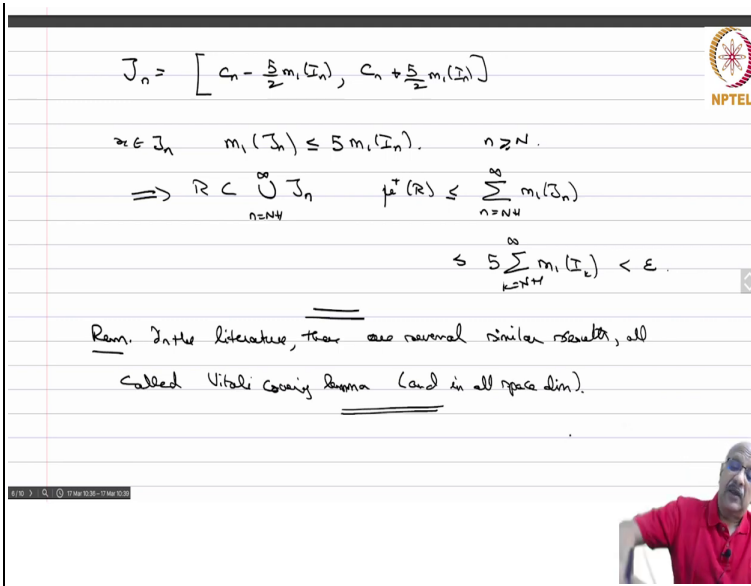 J_n = [ C_n - 5/2 m_1(I_n), C_n + 5/2 m_1(I_n) ]
NPTEL
x ∈ J_n m_1(J_n) ≤ 5 m_1(I_n). n ≥ N.
⟹ R ⊂ ∪_{n=N+1}^∞ J_n μ*(R) ≤ ∑_{n=N+1}^∞ m_1(J_n)
≤ 5 ∑_{k=N+1}^∞ m_1(I_k) < ε.
Rem. In the literature, there are several similar results, all
called Vitali covering lemma (and in all space dim).
6/10 17 Mar 10:36 – 17 Mar 10:39